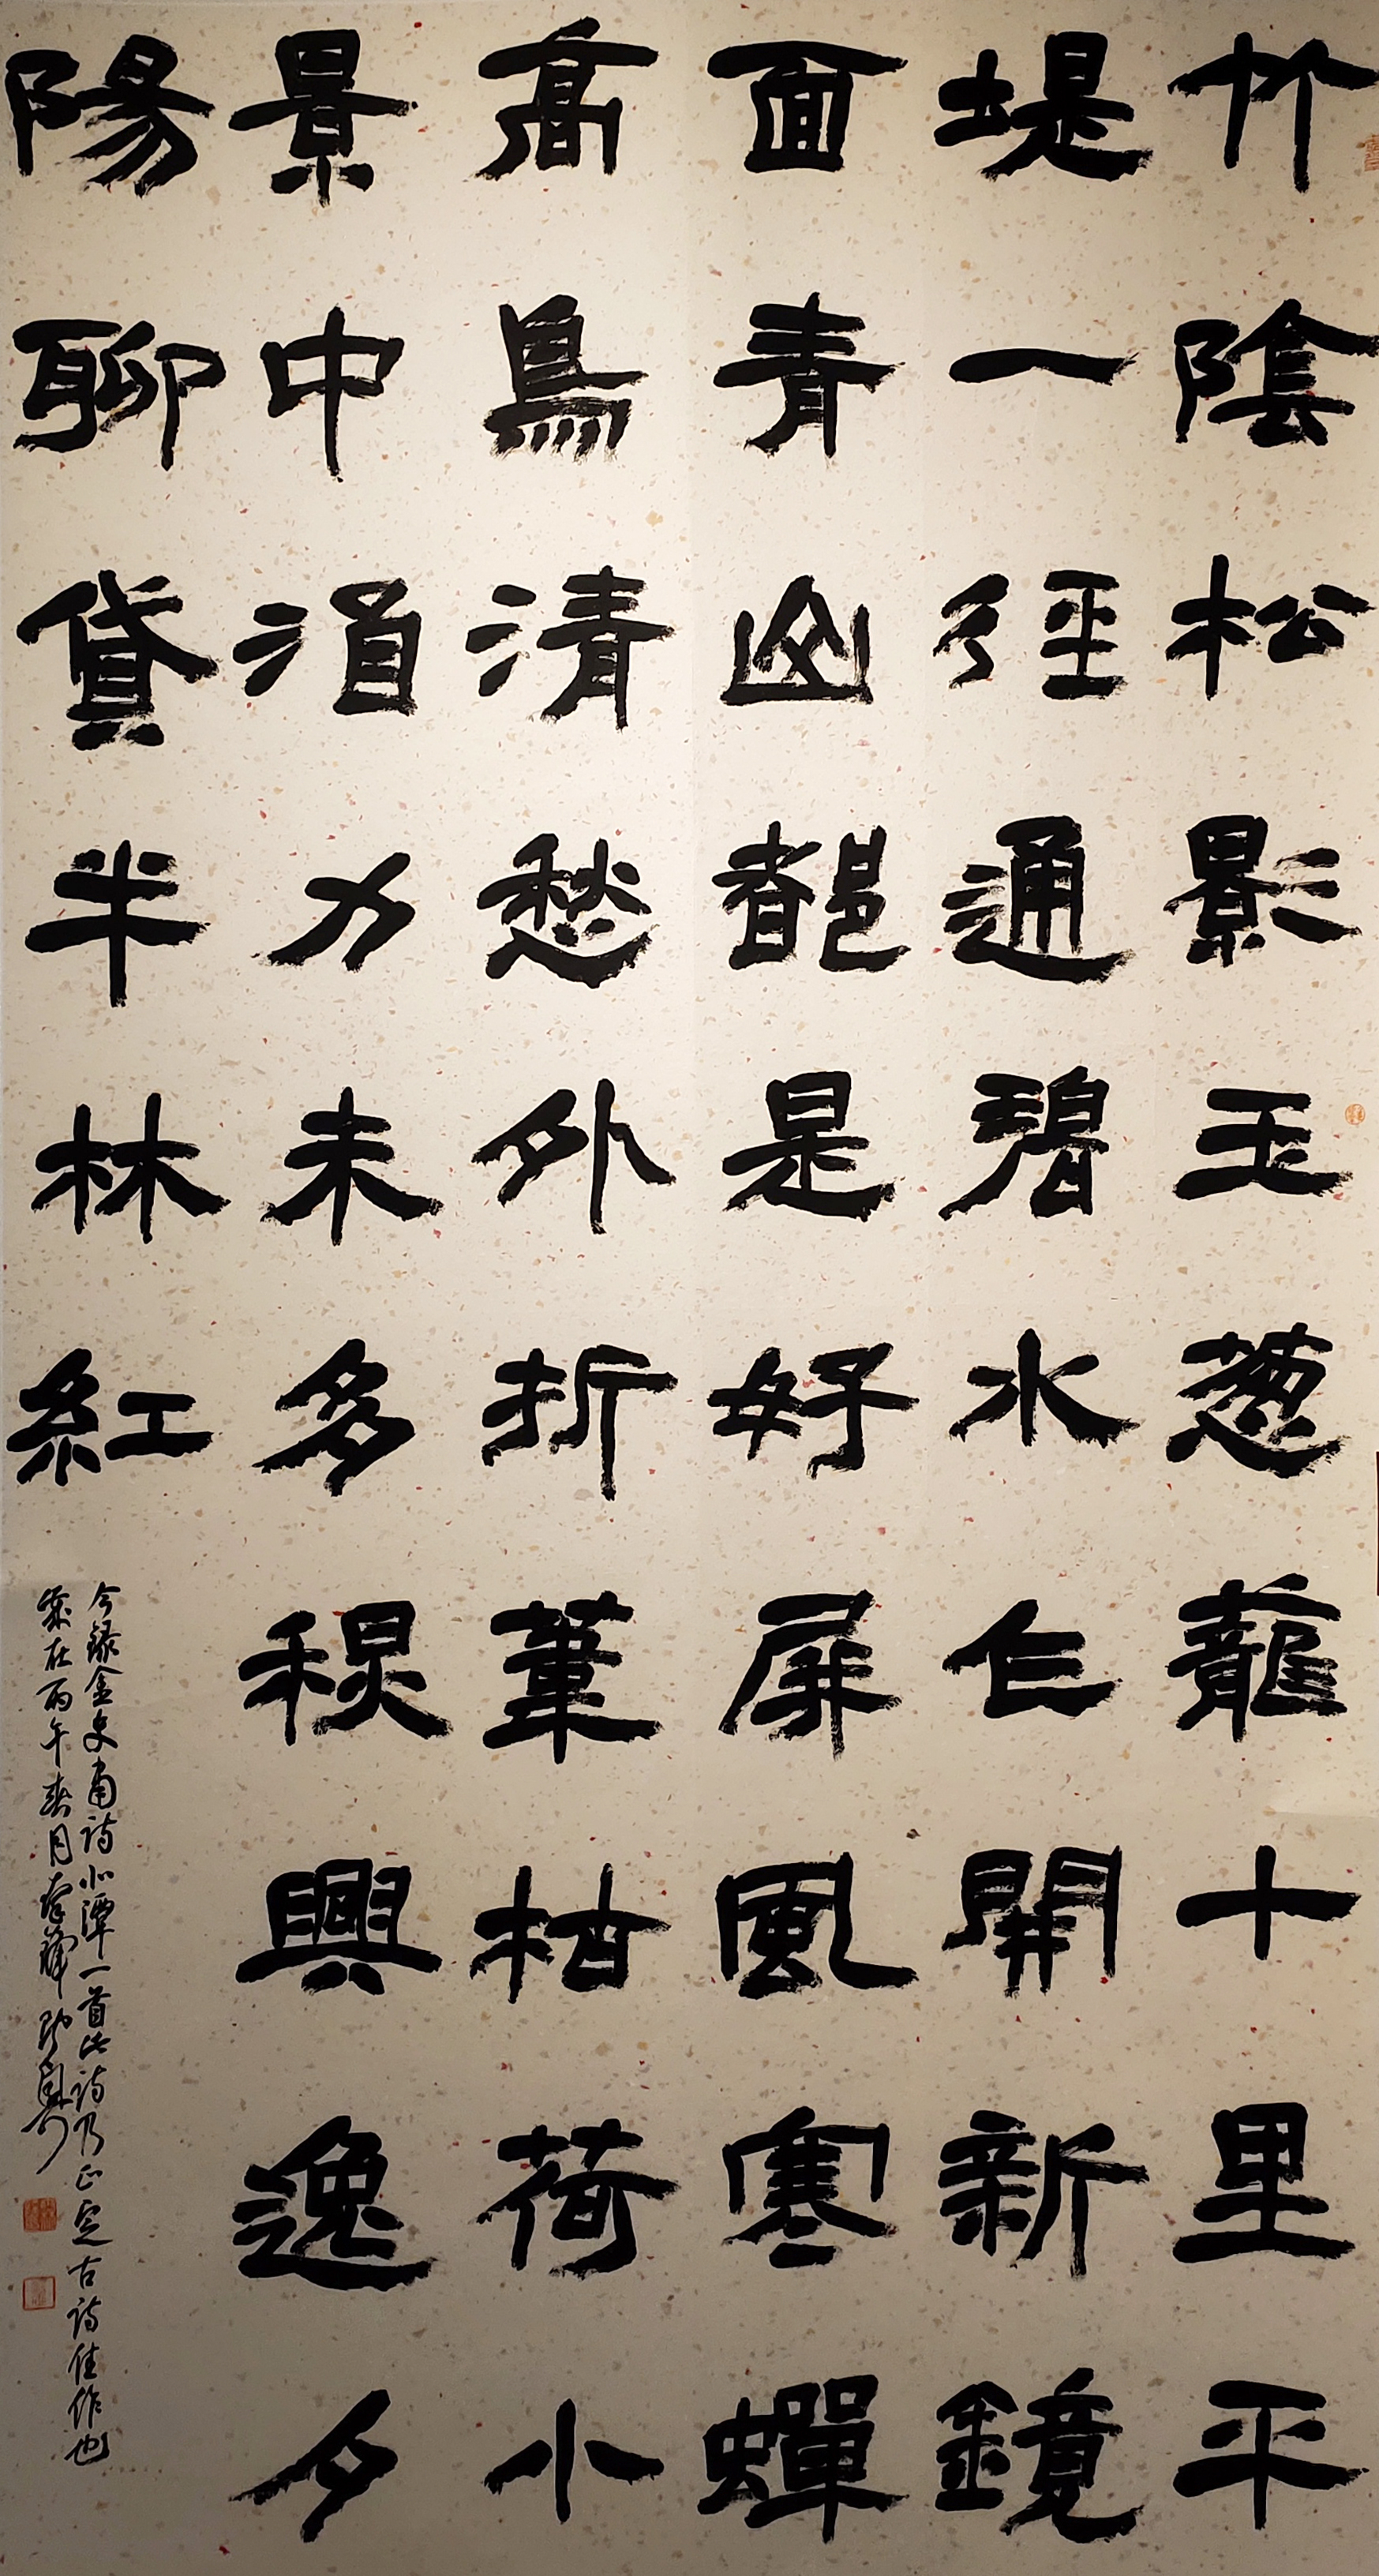 竹陰松影玉葱蘢十里平
堤一徑通碧水乍開新鏡
面青山都是好屏風寒蟬
高鳥清愁外折葦枯荷小
景中須力未多穏興逸夕
陽聊貸半林紅
今錄金史肅詩北潭一首此詩乃正定古詩佳作也
歲在丙午春月